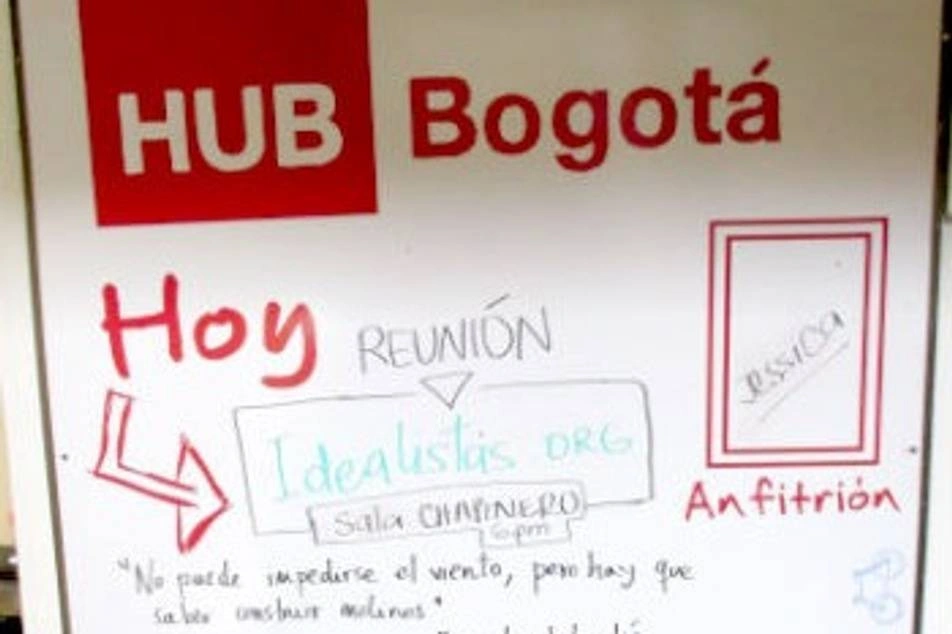 HUB Bogotá
Hoy
REUNIÓN
Idealistas ORG
Sala CHAPINERO
6pm
Jessica
Anfitrión
"No puede impedirse el viento, pero hay que
saber construir molinos"